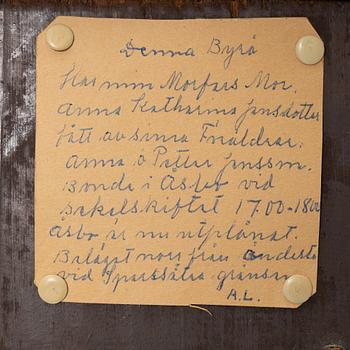 Denna Byrå
Har min Morfars Mor.
Anna Katharina Jansdotter
fått av sinna Föräldrar.
Anna o Petter Jansson.
Bonde i Åsbo vid
sekelskiftet 1700-1800
Åsbo är nu utplånat.
Beläget norr från
vid Sparrsätra gränsen
A.L.